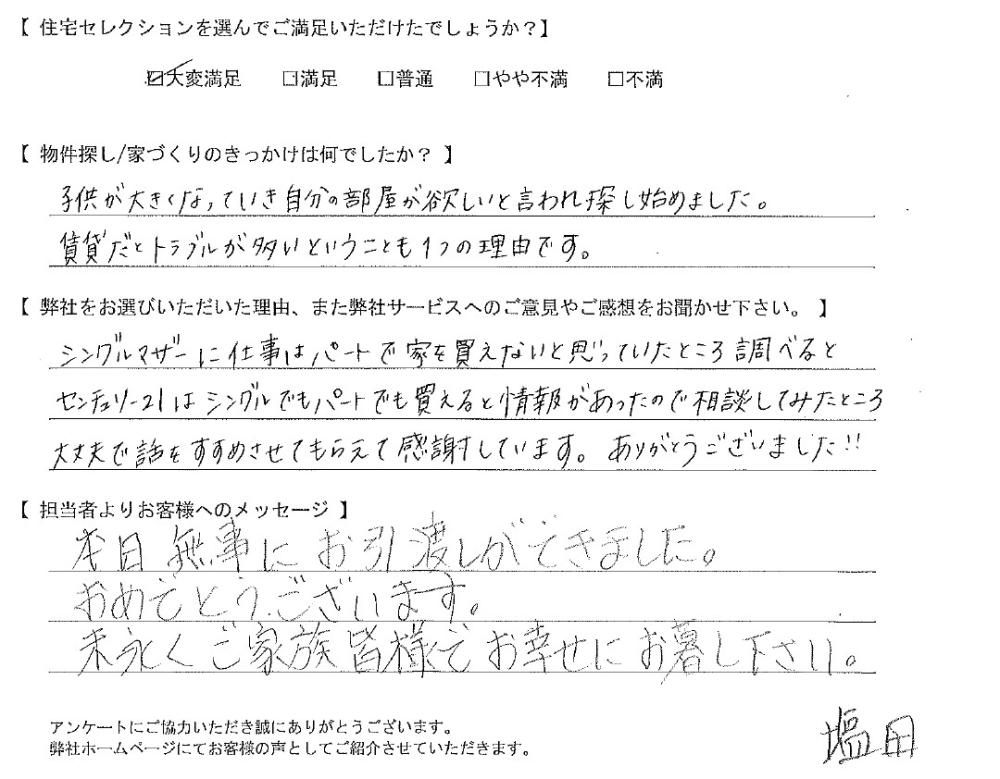 【 住宅セレクションを選んでご満足いただけたでしょうか？】
☑大変満足 □満足 □普通 □やや不満 □不満
【 物件探し/家づくりのきっかけは何でしたか？ 】
子供が大きくなっていき自分の部屋が欲しいと言われ探し始めました。
賃貸だとトラブルが多いということも1つの理由です。
【 弊社をお選びいただいた理由、また弊社サービスへのご意見やご感想をお聞かせ下さい。 】
シングルマザーに仕事はパートで家を買えないと思っていたところ調べると
センチュリー21はシングルでもパートでも買えると情報があったので相談してみたところ
大丈夫で話をすすめさせてもらえて感謝しています。ありがとうございました!!
【 担当者よりお客様へのメッセージ 】
本日無事にお引渡しができました。
おめでとうございます。
末永くご家族皆様でお幸せにお暮し下さい。
アンケートにご協力いただき誠にありがとうございます。
弊社ホームページにてお客様の声としてご紹介させていただきます。
塩田